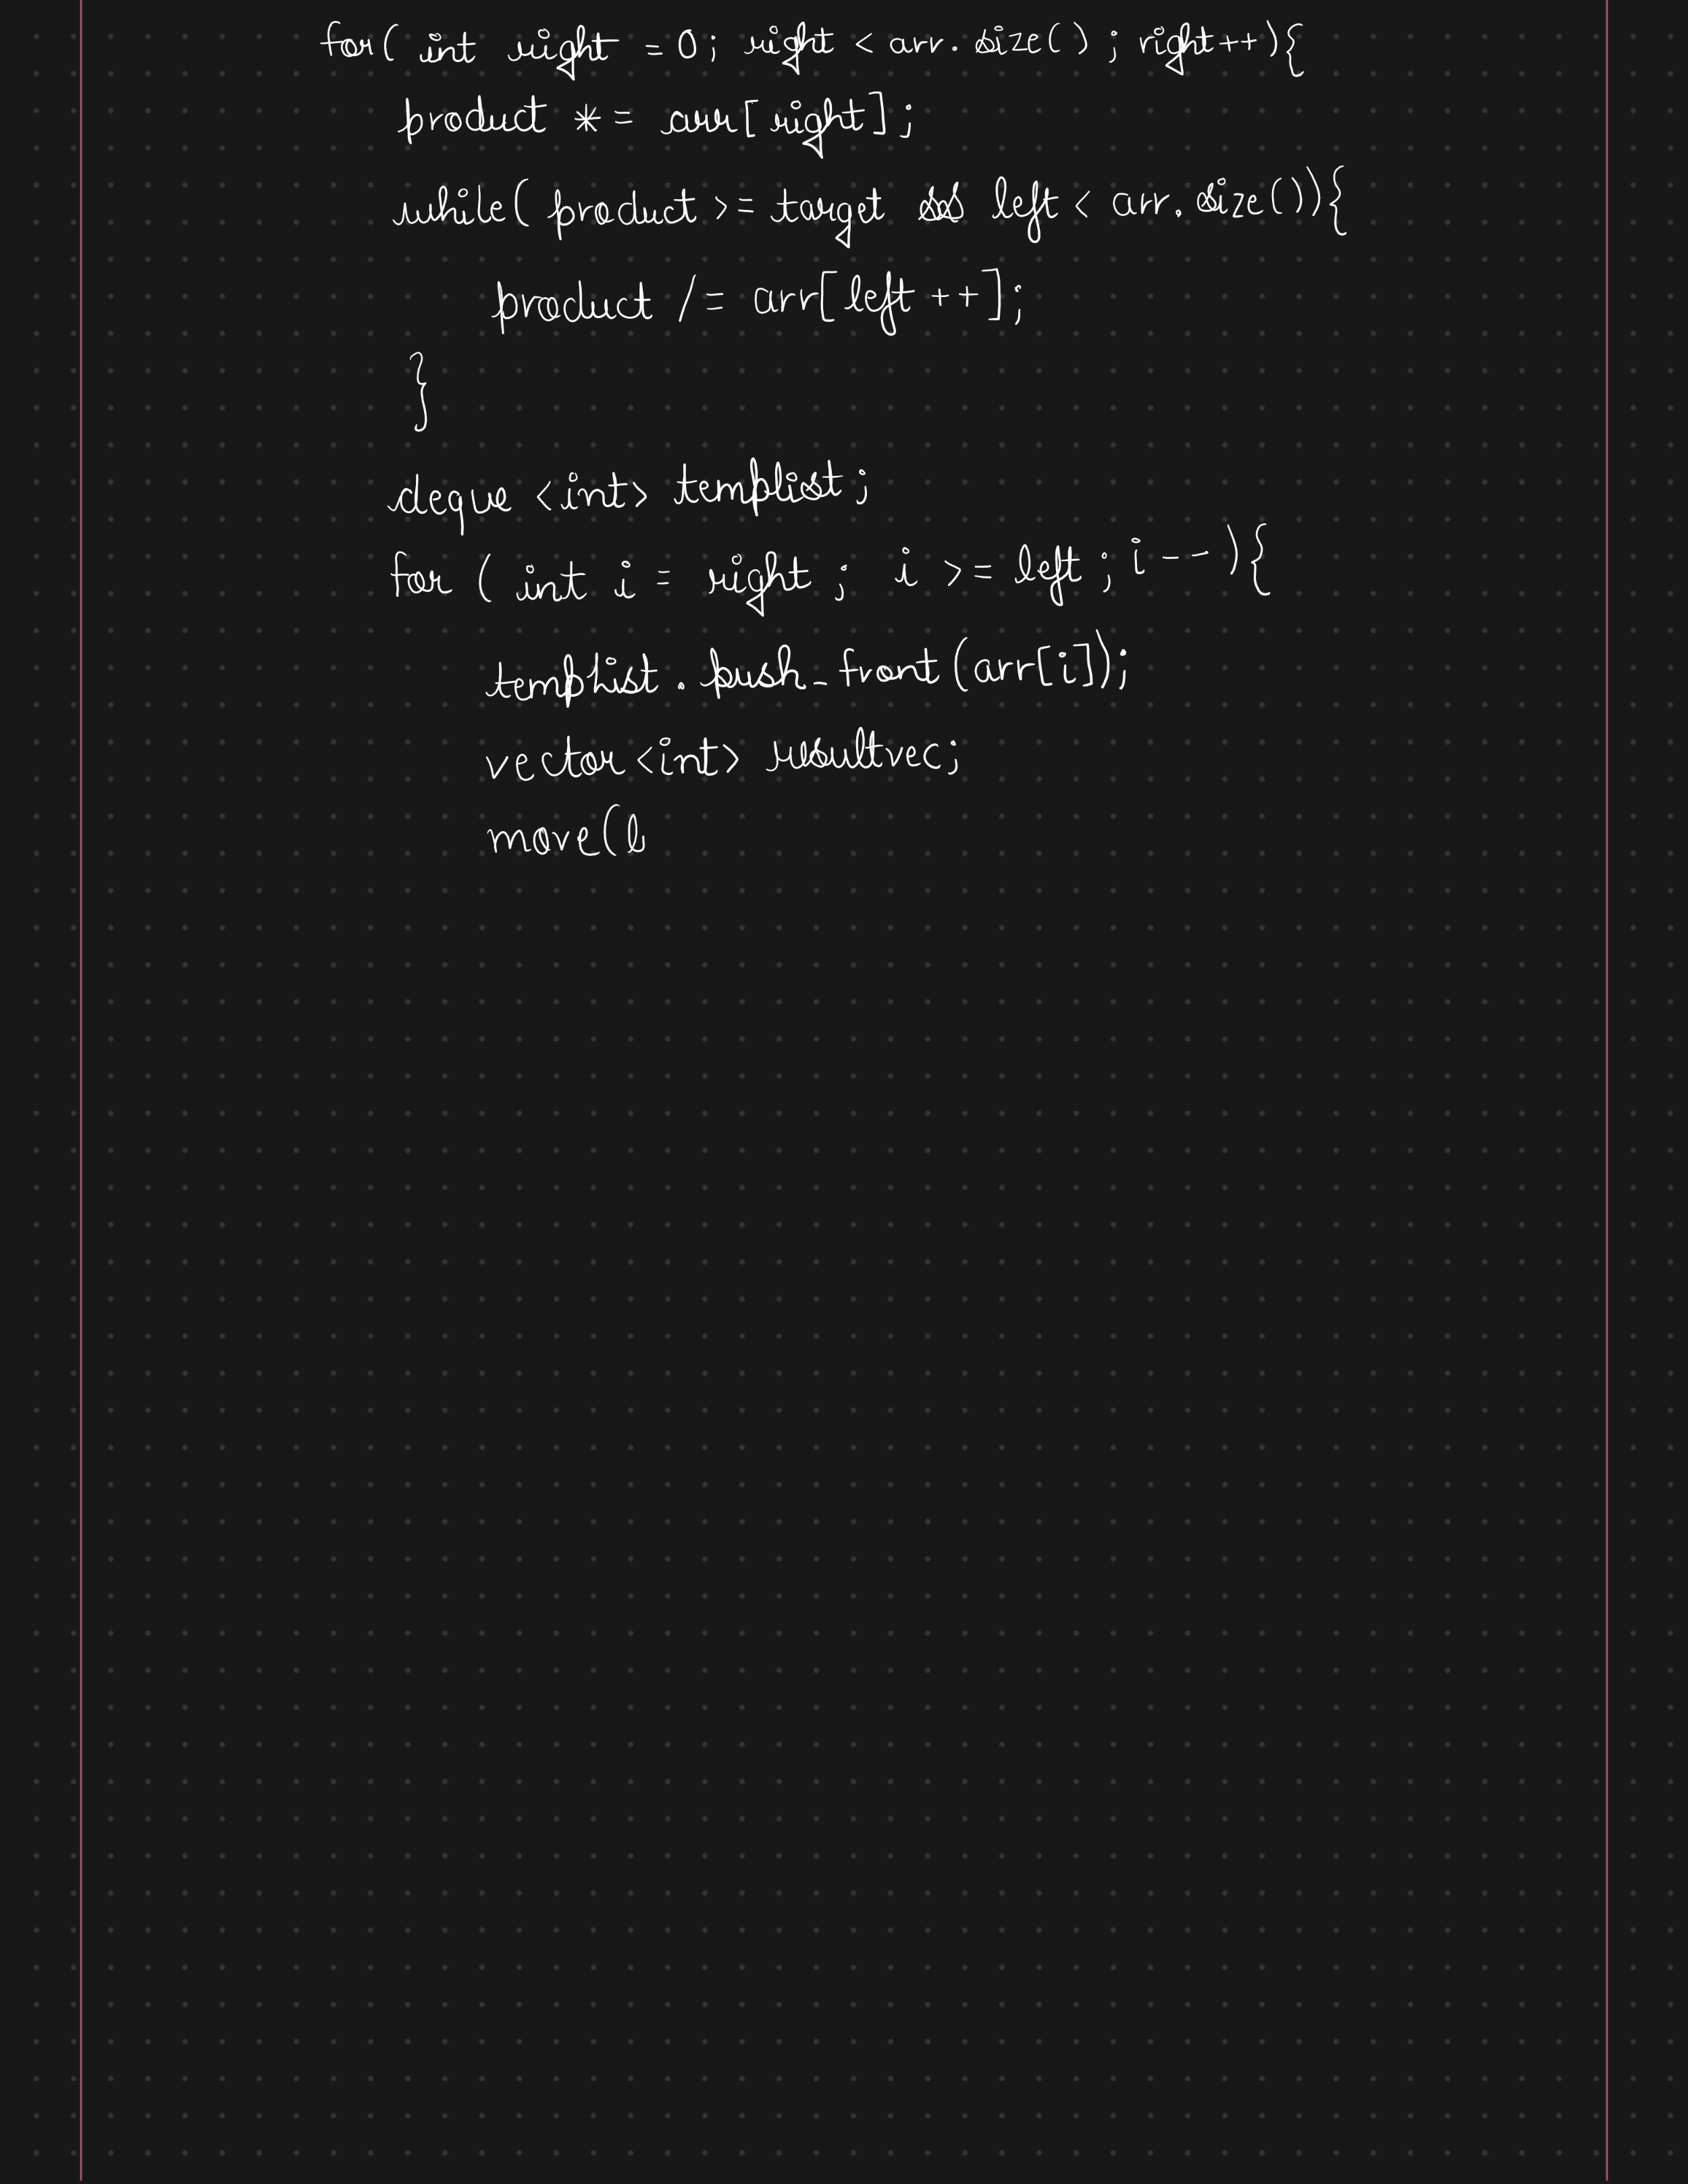 for( int right = 0; right < arr. size() ; right++){
product *= arr[right];
while( product >= target && left < arr. size()){
product /= arr[left++];
}
deque <int> templist;
for ( int i = right ; i >= left ; i--){
templist . push_front(arr[i]);
vector<int> resultvec;
move(l